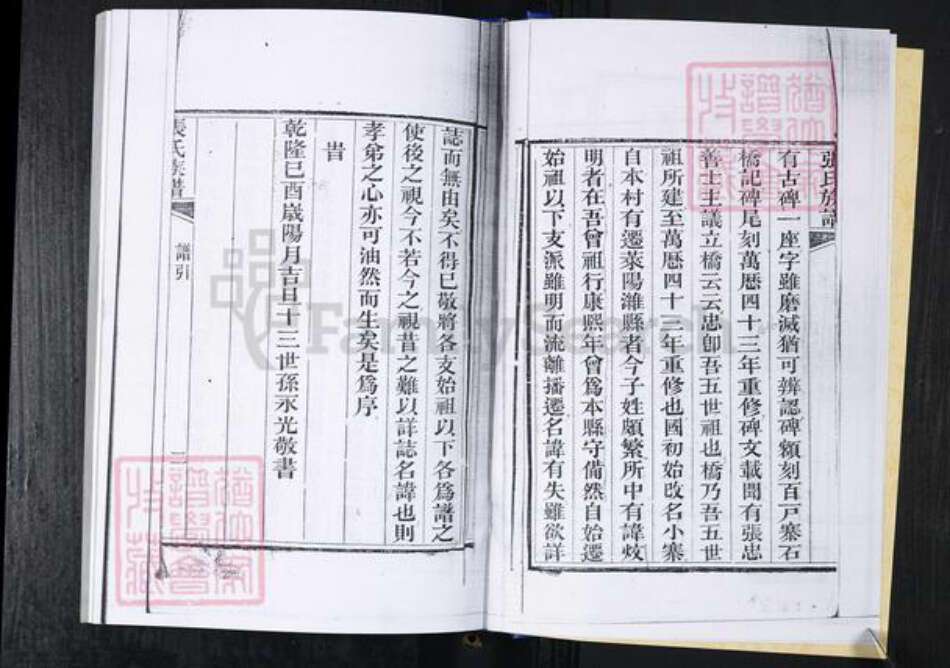 張氏族譜
有古碑一座字雖磨滅猶可辨認碑額刻百戸寨石
橋記碑尾刻萬厯四十三年重修碑文載聞有張忠
善士主議立橋云云忠卽吾五世祖也橋乃吾五世
祖所建至萬厯四十三年重修也國初始改名小寨
自本村有遷萊陽濰縣者今子姓頗繁所中有諱炆
明者在吾曾祖行康熙年曾爲本縣守備然自始遷
始祖以下支派雖明而流離播遷名諱有失雖欲詳
誌而無由矣不得已敬將各支始祖以下各爲譜之
使後之視今不若今之視昔之難以詳誌名諱也則
孝弟之心亦可油然而生矣是爲序
旹
乾隆巳酉歲陽月吉旦十三世孫永光敬書
張氏族譜
譜引
二
FamilySearch